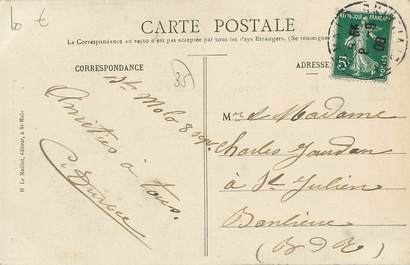 b t
CARTE POSTALE
La Correspondance au recto n'est pas acceptée par tous les Pays Etrangers. (Se renseigner
CORRESPONDANCE
ADRESSE
35
St Malo 8 sept.
Amitiés à tous.
Mr & Madame
Charles Jourdan
à St Julien
Banlieue
(B d R)
H. Le Maillot, éditeur, à St-Malo
REPUBLIQUE FRANÇAISE
5c
POSTES